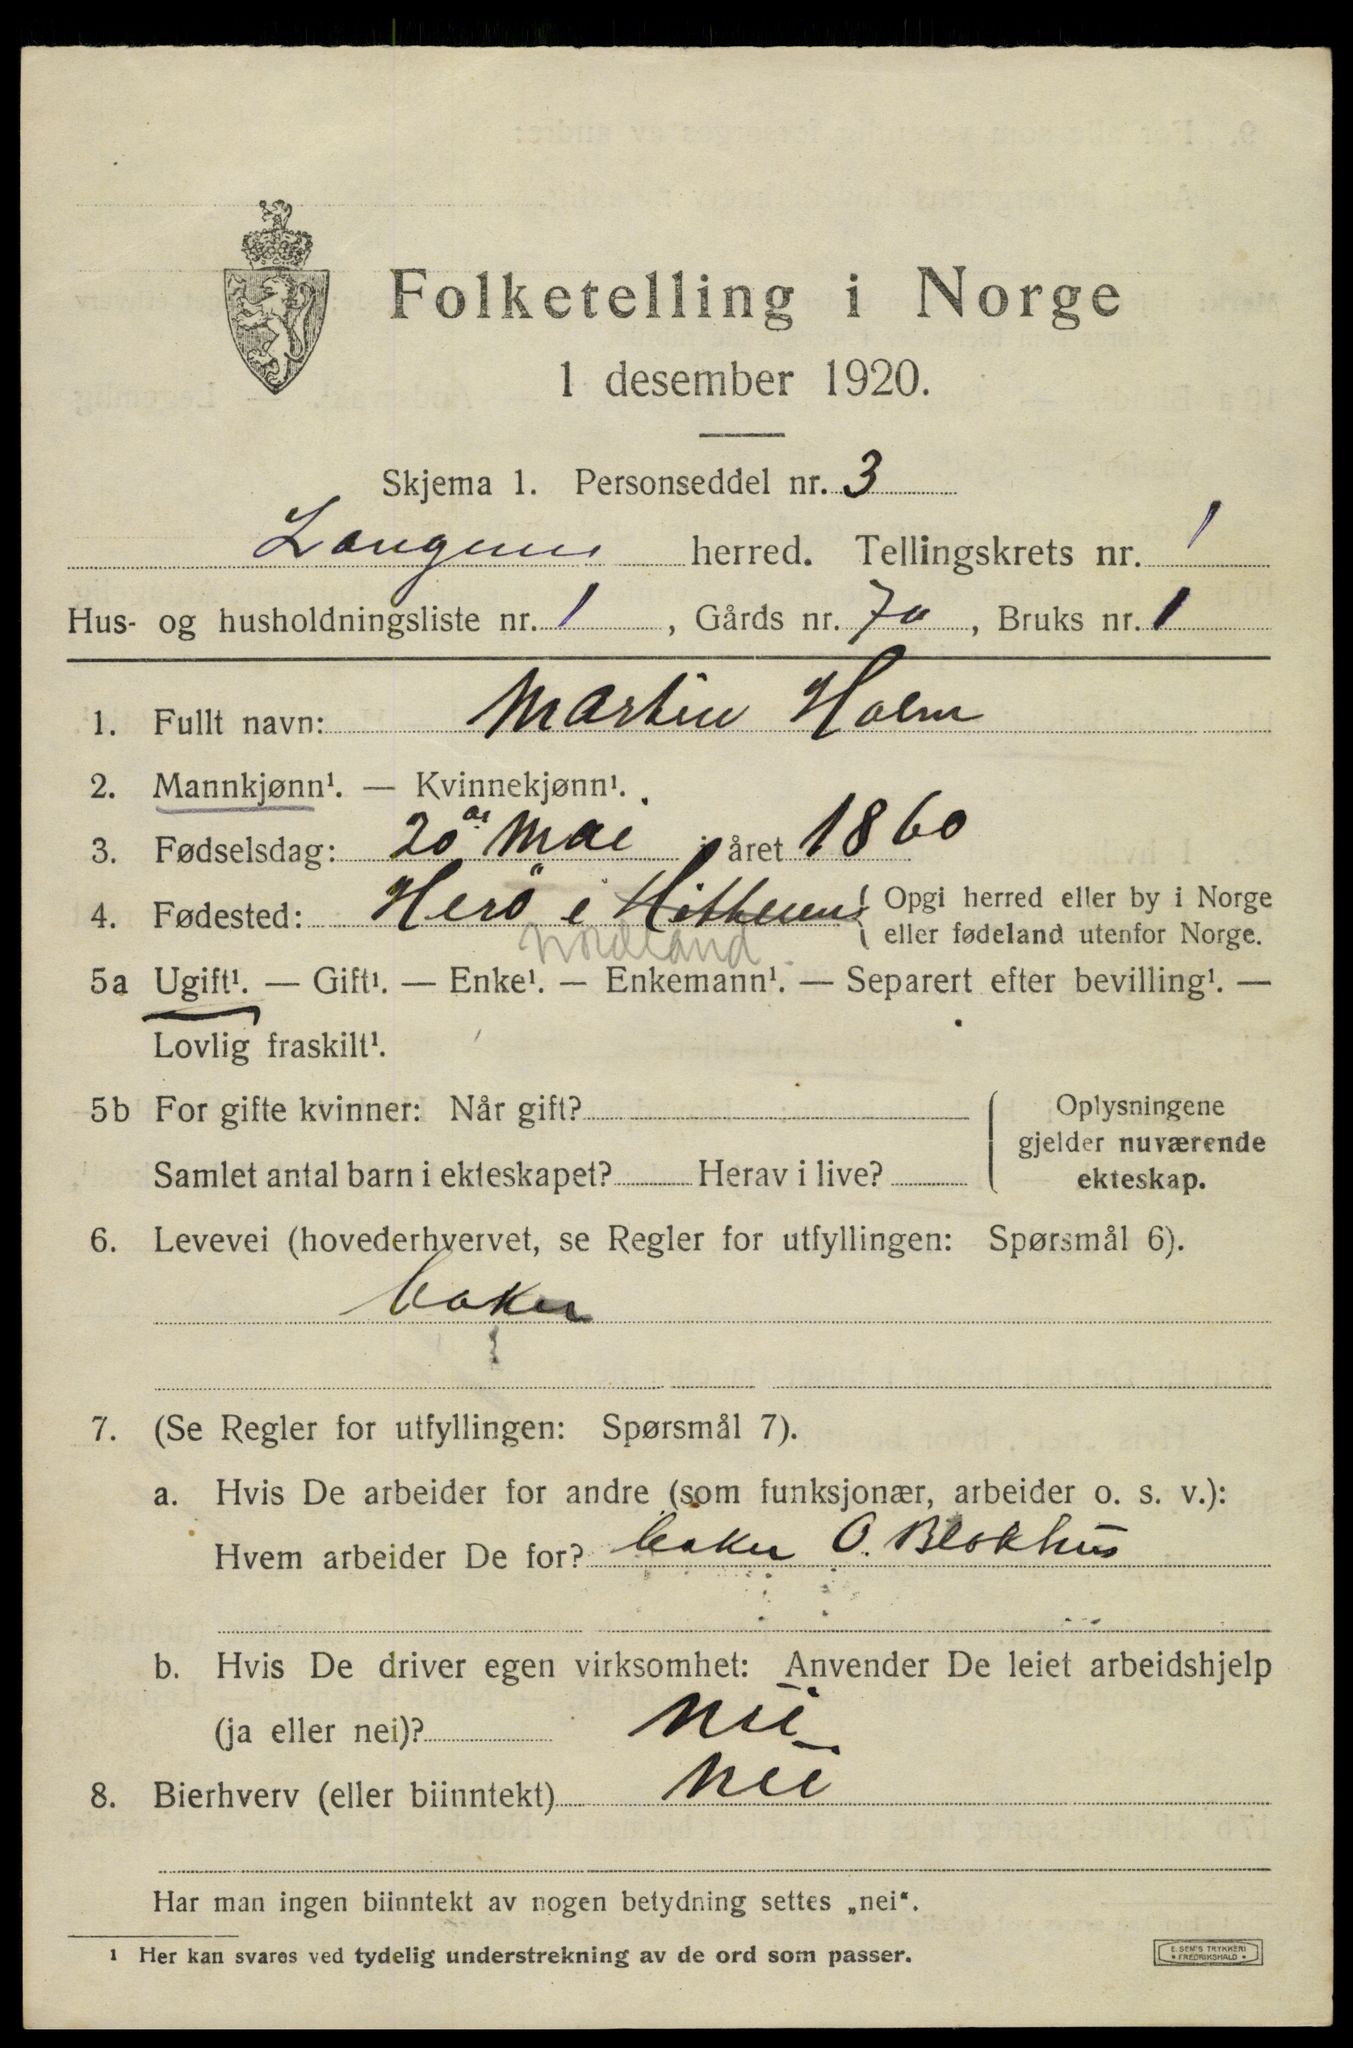 Folketelling i Norge
1 desember 1920.
Skjema 1. Personseddel nr. 3
herred. Tellingskrets nr. 1
Hus- og husholdningsliste nr. 1, Gårds nr. 70, Bruks nr. 1
1. Fullt navn: Martin Holm
2. Mannkjønn¹. — Kvinnekjønn¹.
3. Fødselsdag: 20 Mai året 1860
4. Fødested: Herö i { Opgi herred eller by i Norge
eller fødeland utenfor Norge.
Nordland
5a Ugift¹. — Gift¹. — Enke¹. — Enkemann¹. — Separert efter bevilling¹. —
Lovlig fraskilt¹.
5b For gifte kvinner: Når gift? { Oplysningene
gjelder nuværende
Samlet antal barn i ekteskapet? Herav i live? ekteskap.
6. Levevei (hovederhvervet, se Regler for utfyllingen: Spørsmål 6).
baker
7. (Se Regler for utfyllingen: Spørsmål 7).
a. Hvis De arbeider for andre (som funksjonær, arbeider o. s. v.):
Hvem arbeider De for? baker O. Blokhus
b. Hvis De driver egen virksomhet: Anvender De leiet arbeidshjelp
(ja eller nei)? Nei
8. Bierhverv (eller biinntekt) Nei
Har man ingen biinntekt av nogen betydning settes „nei“.
¹ Her kan svares ved tydelig understrekning av de ord som passer.
E. SEM'S TRYKKERI
FREDRIKSHALD